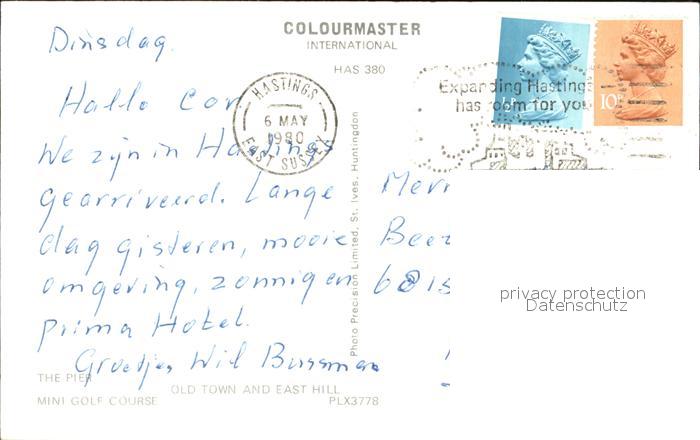 COLOURMASTER
INTERNATIONAL
HAS 380
Dinsdag.
HASTINGS
6 MAY
1980
EAST SUSSEX
Expanding Hastings
has room for you
10P
Hallo Cor
We zijn in Hastings
gearriveerd. Lange
dag gisteren, mooie
omgeving, zonnig en
prima Hotel.
Groetjes Wil Bussman
Photo Precision Limited, St. Ives, Huntingdon
Beez
privacy protection
Datenschutz
THE PIER
OLD TOWN AND EAST HILL
MINI GOLF COURSE
PLX3778